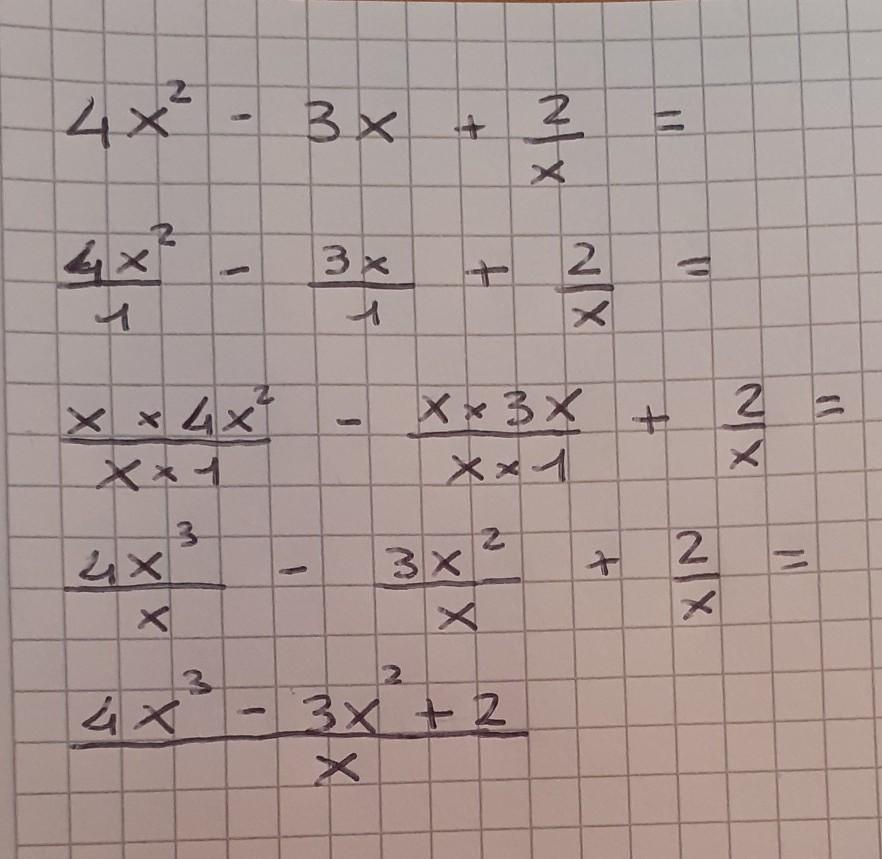 4x² - 3x + 2/x =
4x²/1 - 3x/1 + 2/x =
(x × 4x²)/(x × 1) - (x × 3x)/(x × 1) + 2/x =
4x³/x - 3x²/x + 2/x =
(4x³ - 3x² + 2)/x